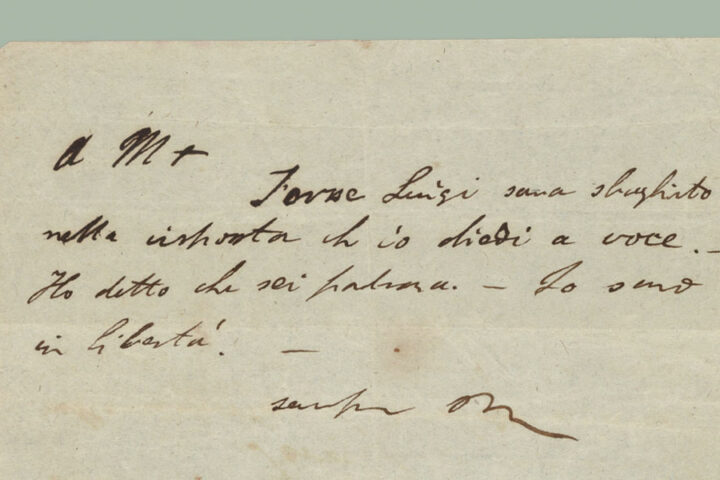 A M+
Forse Luigi sara sbagliato
nella risposta ch io diedi a voce. –
Ho detto che sei padrona. – Io sarò
in libertá. –
sempre